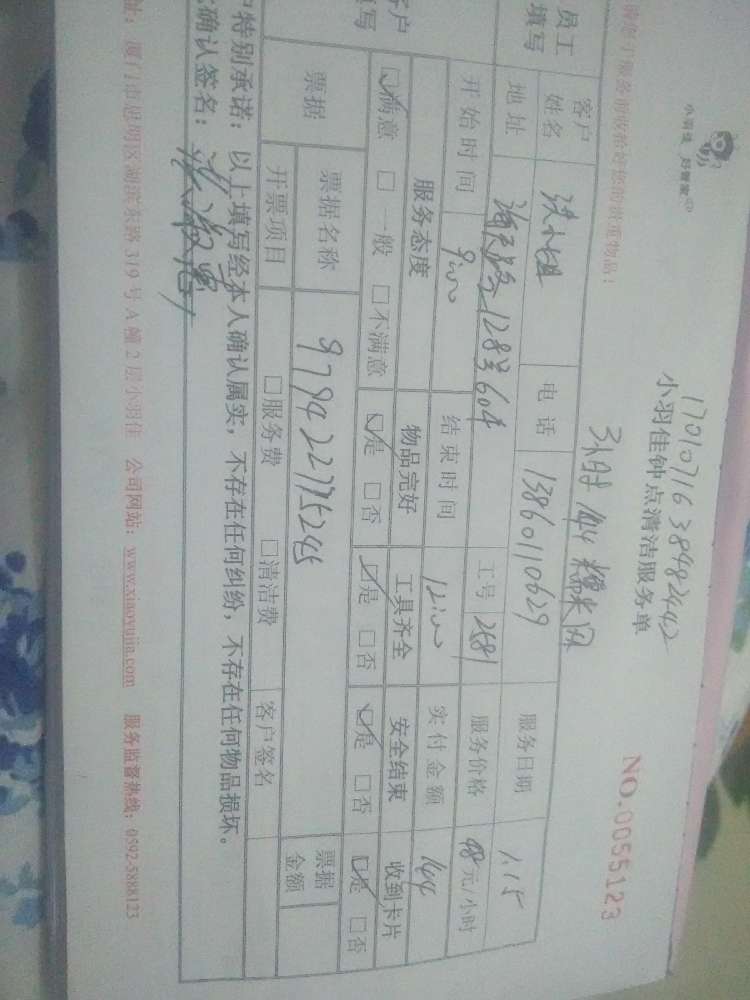 小羽佳 好管家
1701071638482442
小羽佳钟点清洁服务单
NO.0055123
3小时 144 糯米网
请您了服务前收拾好您的贵重物品：
员工填写
客户姓名 洪小姐 电话 13860110629 服务日期 1.15
地址 128号604 工号 2681 服务价格 48元/小时
开始时间 9:00 结束时间 12:00 实付金额 144
客户填写
服务态度 物品完好 工具齐全 安全结束 收到卡片
☑满意 □一般 □不满意 ☑是 □否 ☑是 □否 ☑是 □否 ☑是 □否
票据 票据名称 票据金额
开票项目 □服务费 □清洁费 客户签名
户特别承诺：以上填写经本人确认属实，不存在任何纠纷，不存在任何物品损坏。
确认签名：
址：厦门市思明区湖滨东路319号A幢2层小羽佳 公司网站：www.xiaoyujia.com 服务监督热线：0592-5888123